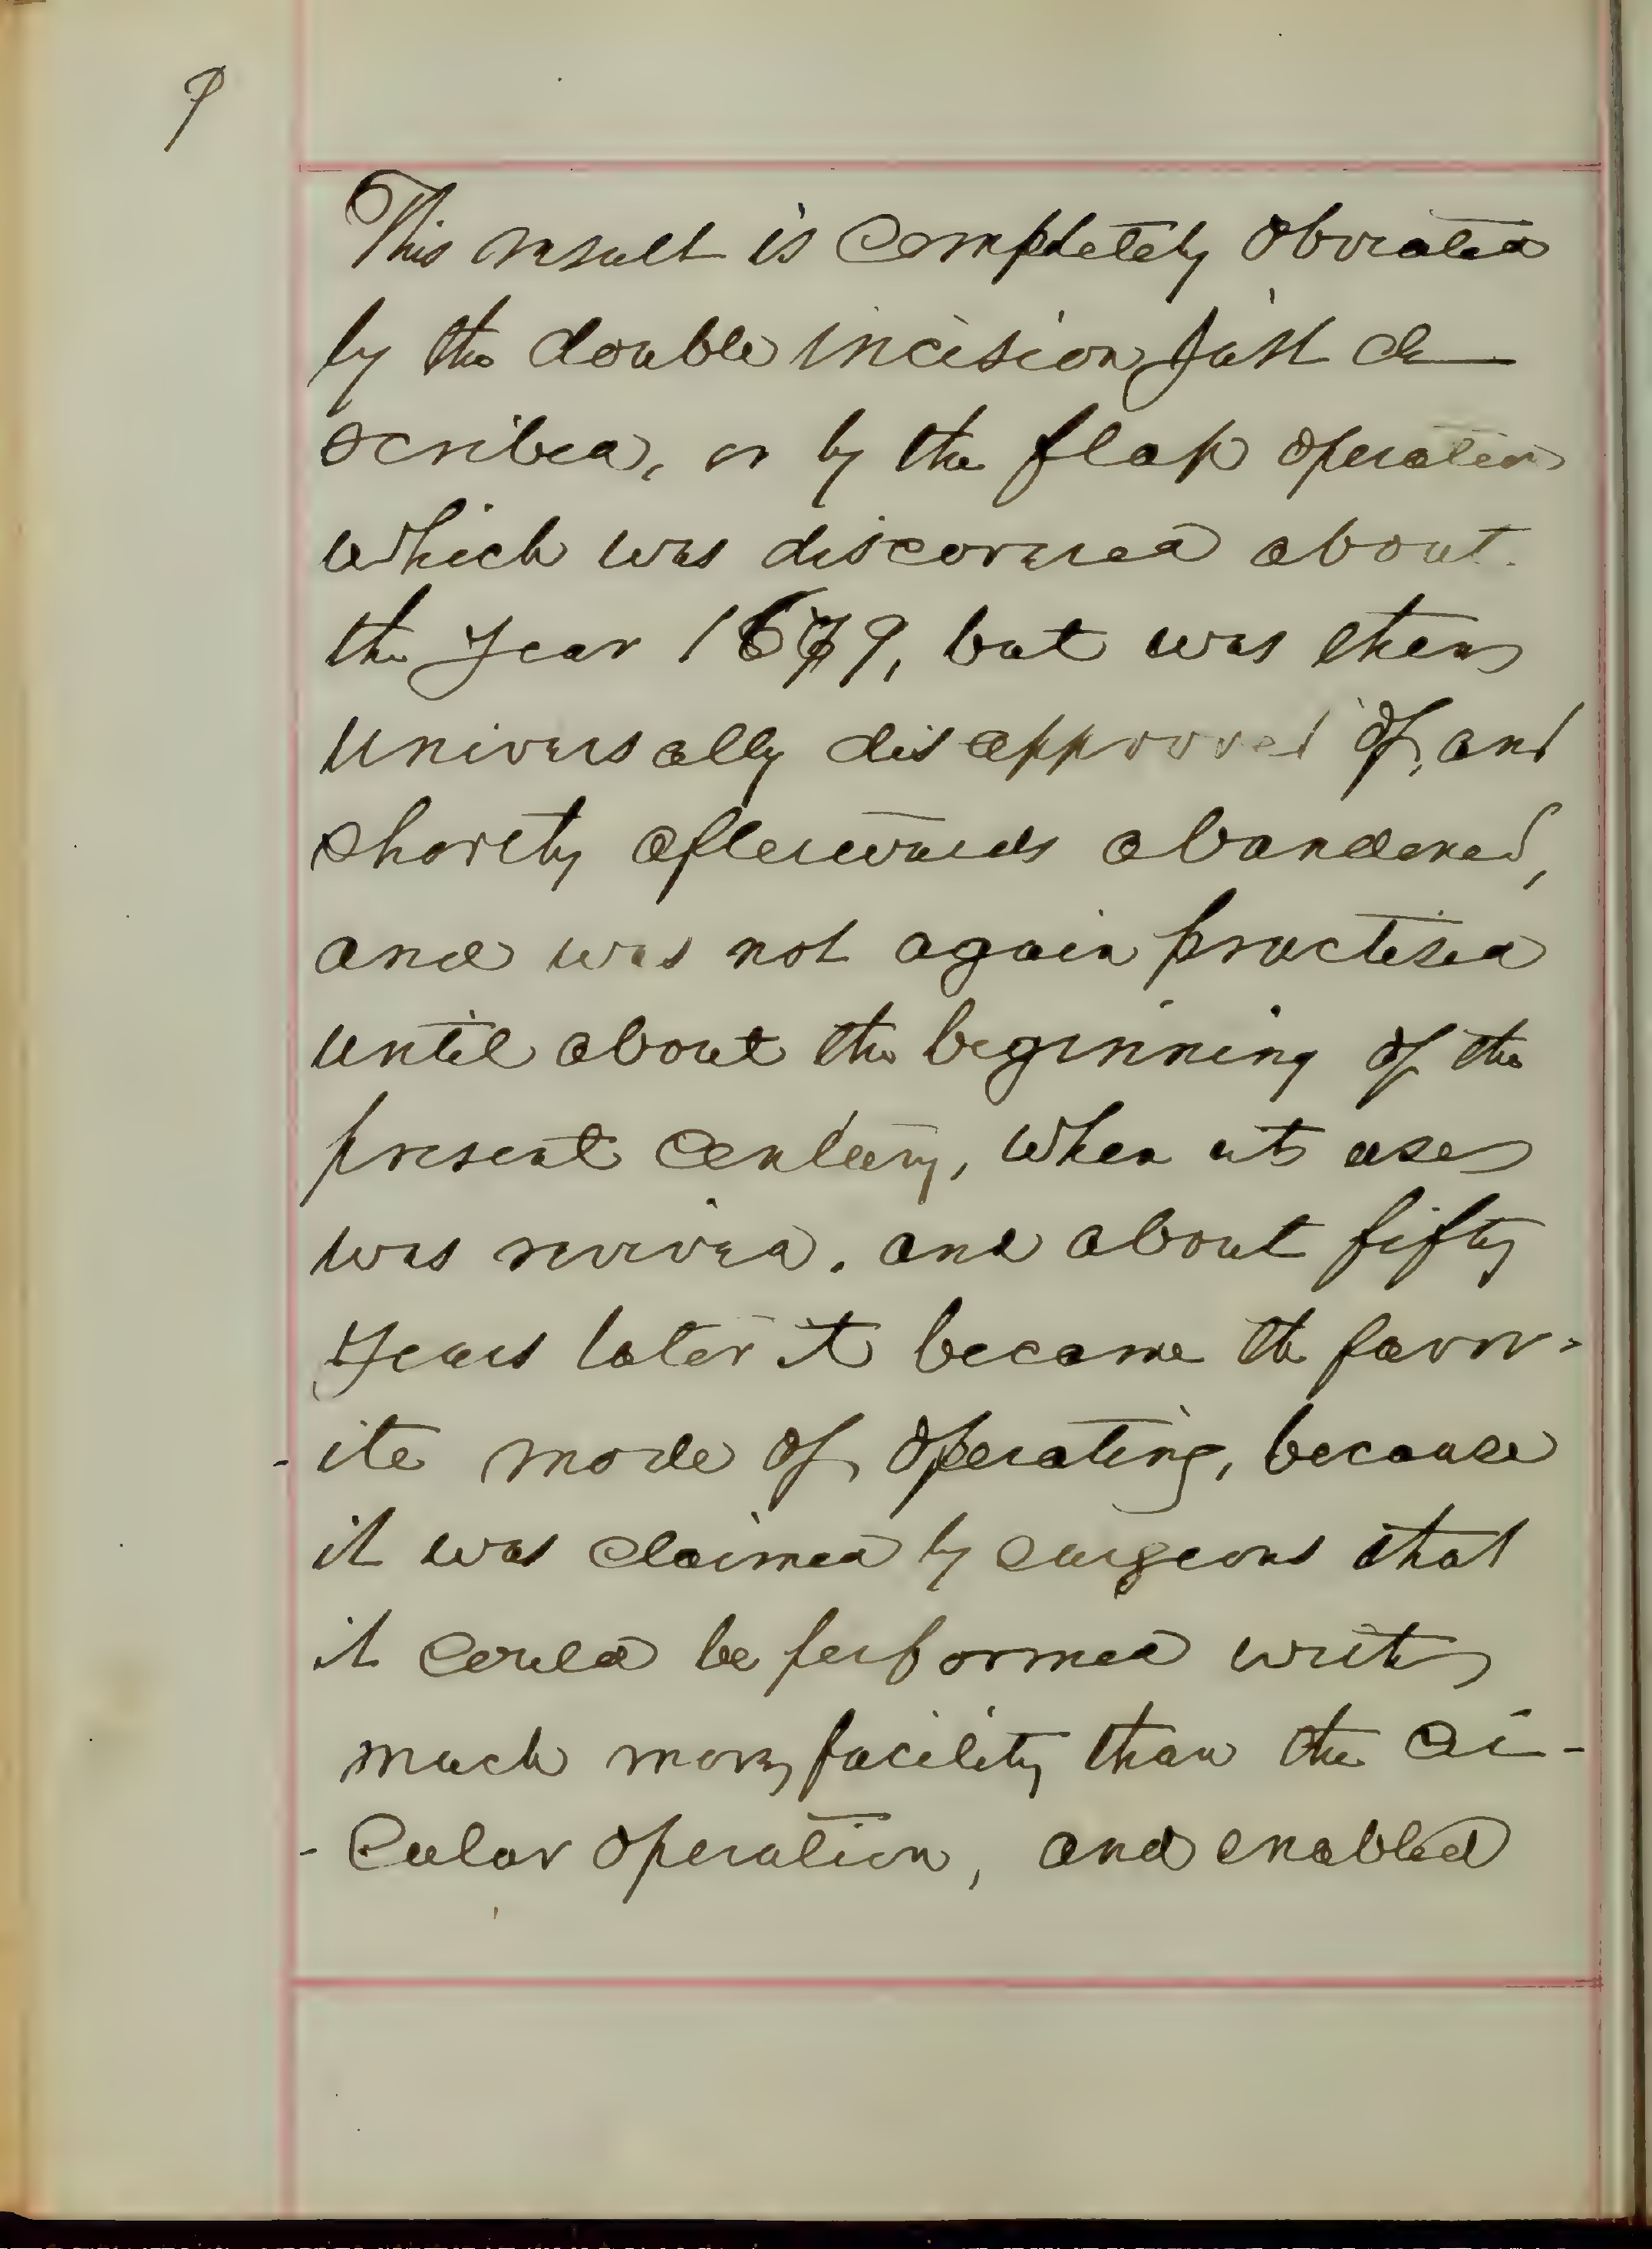 9
This result is completely obviated
by the double incision just de
scribed, or by the flap operation
which was discovered about
the year 1679, but was then
universally disapproved of, and
shortly afterwards abandoned,
and was not again practised
until about the beginning of the
present century, when its use
was revived. and about fifty
years later it became the favor-
-ite mode of operating, because
it was claimed by surgeons that
it could be performed with
much more facility than the cir-
-cular operation, and enabled